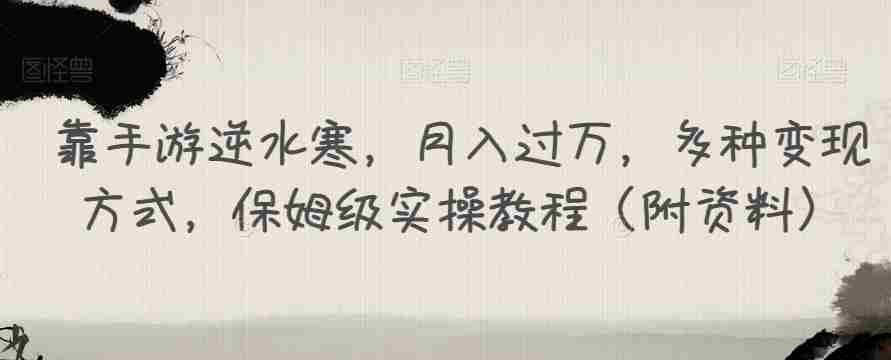 图怪兽 图怪兽 图怪兽
靠手游逆水寒，月入过万，多种变现
方式，保姆级实操教程（附资料）